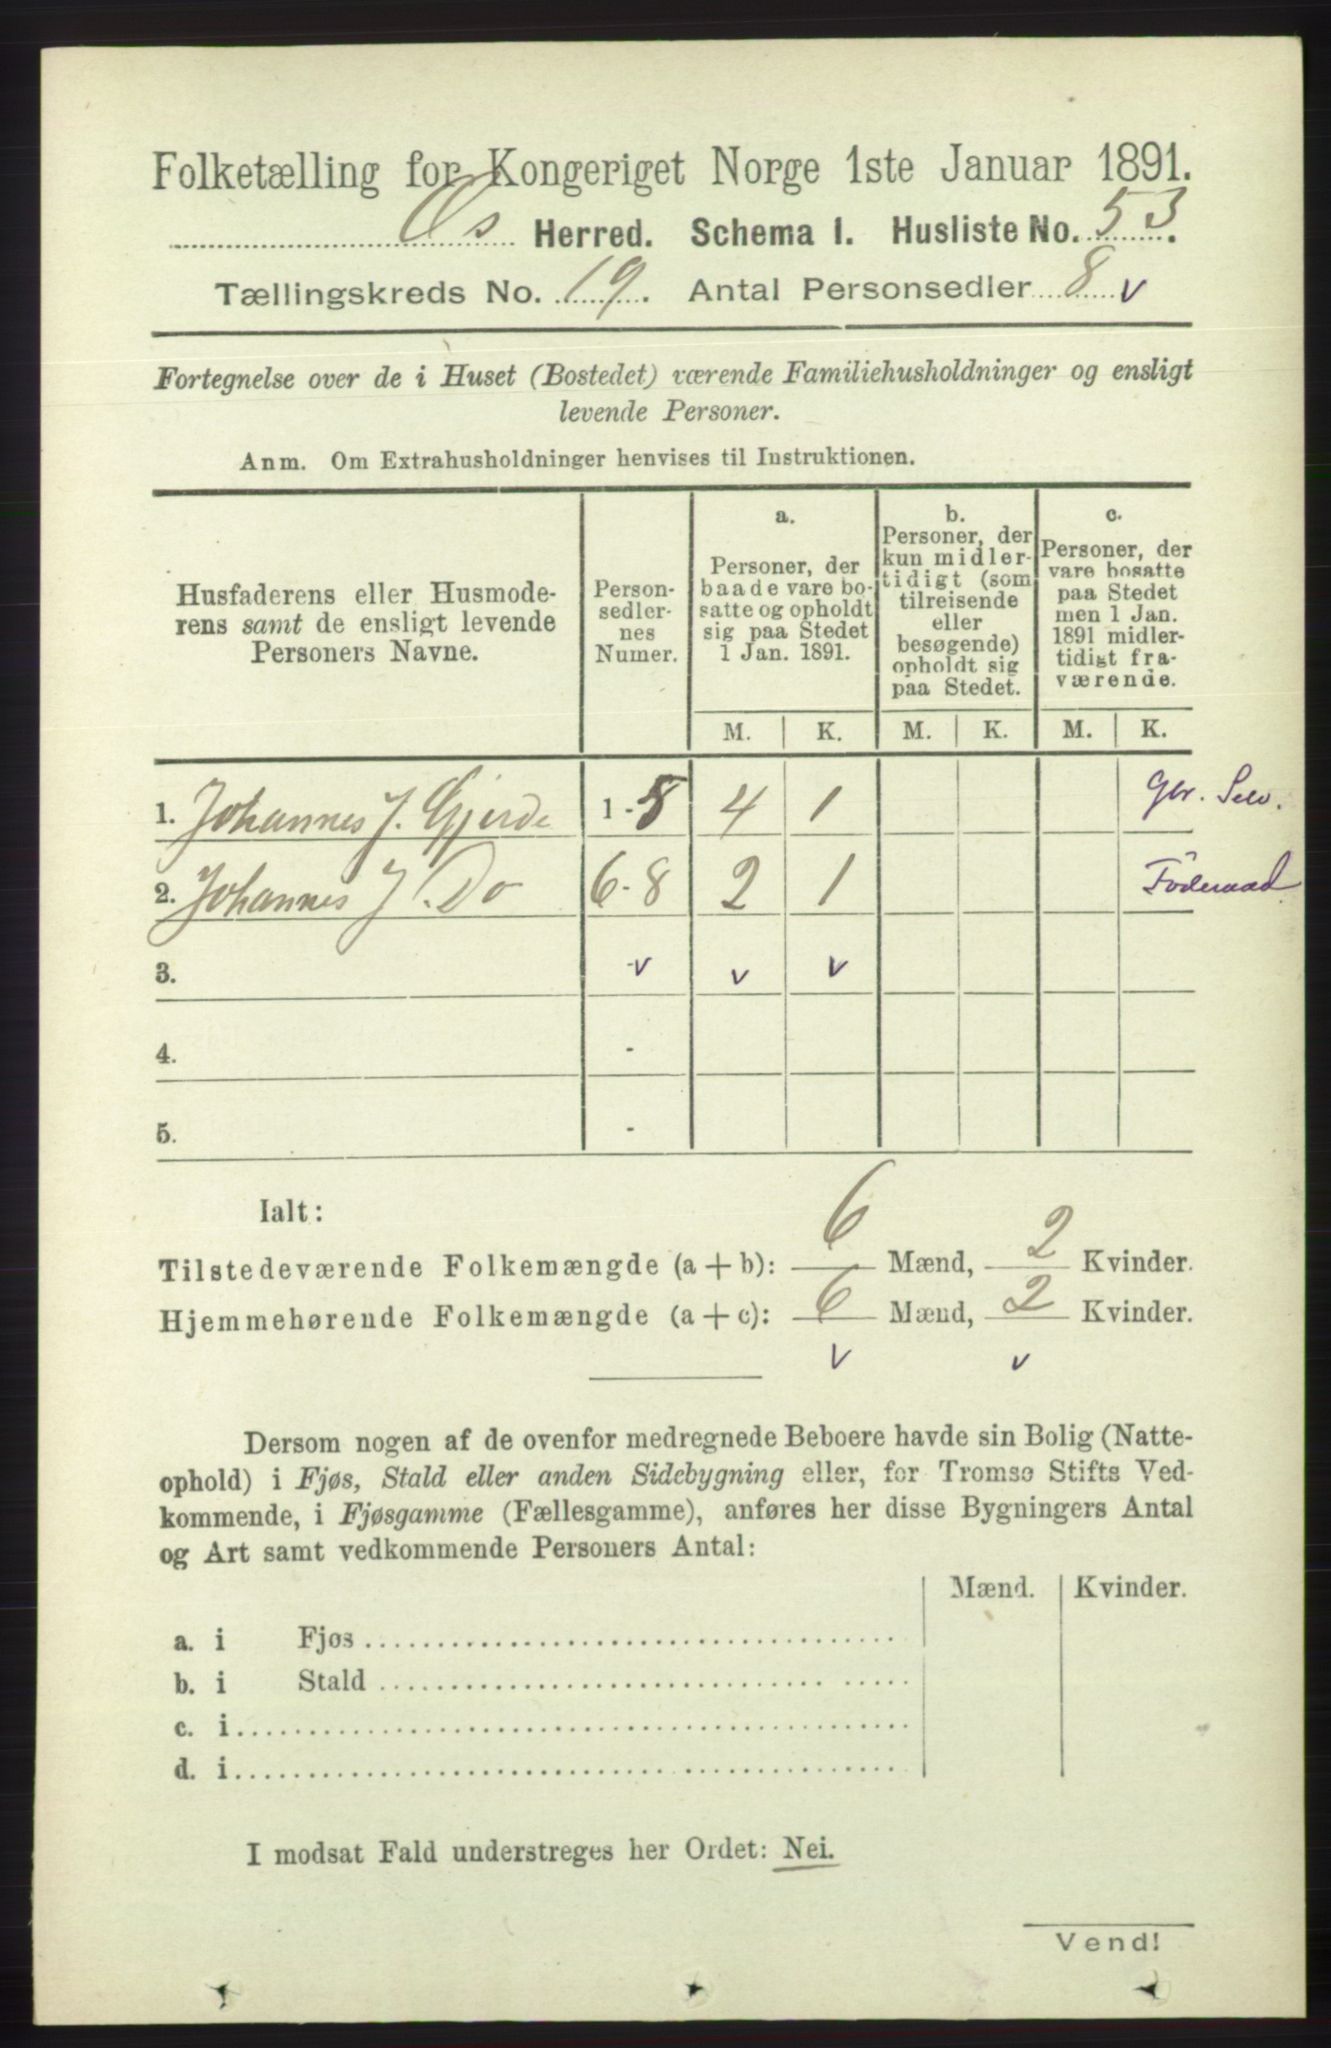 Folketælling for Kongeriget Norge 1ste Januar 1891.
Os Herred. Schema 1. Husliste No. 53.
Tællingskreds No. 19. Antal Personsedler 8 v
Fortegnelse over de i Huset (Bostedet) værende Familiehusholdninger og ensligt
levende Personer.
Anm. Om Extrahusholdninger henvises til Instruktionen.
Husfaderens eller Husmode-
rens samt de ensligt levende
Personers Navne.
Person-
sedler-
nes
Numer.
a.
Personer, der
baade vare bo-
satte og opholdt
sig paa Stedet
1 Jan. 1891.
b.
Personer, der
kun midler-
tidigt (som
tilreisende
eller
besøgende)
opholdt sig
paa Stedet.
c.
Personer, der
vare bosatte
paa Stedet
men 1 Jan.
1891 midler-
tidigt fra-
værende.
M. K. M. K. M. K.
1. Johannes J. Gjerde 1-5 4 1 Gbr. Selv.
2. Johannes J. Do 6-8 2 1 Föderaad
3. -v v v
4. -
5. -
Ialt:
Tilstedeværende Folkemængde (a + b): 6 Mænd, 2 Kvinder.
Hjemmehørende Folkemængde (a + c): 6 Mænd, 2 Kvinder.
v v
Dersom nogen af de ovenfor medregnede Beboere havde sin Bolig (Natte-
ophold) i Fjøs, Stald eller anden Sidebygning eller, for Tromsø Stifts Ved-
kommende, i Fjøsgamme (Fællesgamme), anføres her disse Bygningers Antal
og Art samt vedkommende Personers Antal:
Mænd. Kvinder.
a. i Fjøs
b. i Stald
c. i
d. i
I modsat Fald understreges her Ordet: Nei.
Vend!